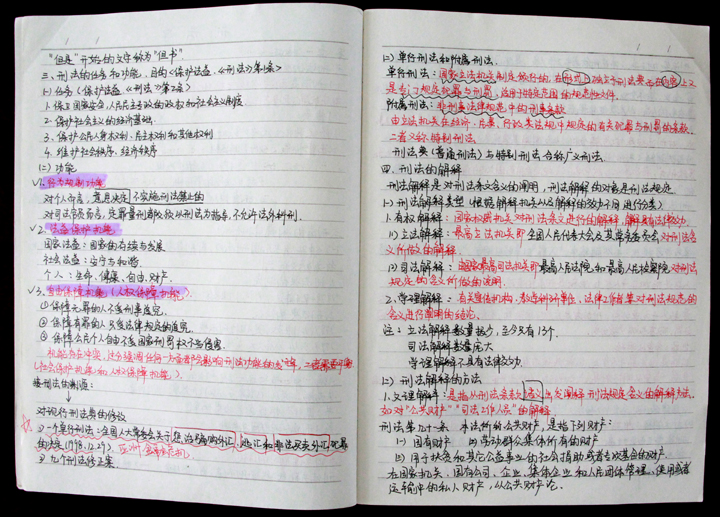 "但是"开始的文字称为"但书"
三、刑法的任务和功能、目的《保护法益、《刑法》第2条》
(一)任务(保护法益、《刑法》第2条)
1.保卫国家安全、人民民主专政的政权和社会主义制度
2.保护社会主义的经济基础
3、保护公民人身权利、民主权利和其他权利
4.维护社会秩序、经济秩序
(二)功能
√1.行为规制功能
对个人而言,意思决定不实施刑法禁止的
对司法官员而言,定罪量刑都必须以刑法为指南,不允许法外科刑.
√2.法益保护机能
国家法益:国家的存续与发展
社会法益:安宁与和谐
个人:生命、健康、自由、财产
√3.自由保障机能(人权保障机能)
①保障无罪的人不受刑事追究
②保障有罪的人只受法律规定的追究
③保障公民个人自由不受国家刑罚权不当侵害
(社会保护机能和人权保障机能)
对现行刑法典的修改
1)一个单行刑法:全国人大常委会关于惩治骗购外汇、逃汇和非法买卖外汇犯罪
的决定(1998.12.29) 亚洲金融危机
2)九个刑法修正案
(二)单行刑法和附属刑法.
单行刑法:国家立法机关制定颁行的,在形式上独立于刑法典而在内容上又
是专门规定犯罪与刑罚,适用于特定范围的规范性文件.
附属刑法:非刑事法律规范中的刑事条款
由立法机关在经济、民事、行政等法规中规定的有关犯罪与刑罚的条款.
二者又称特别刑法
刑法典(普通刑法)与特别刑法合称广义刑法.
四.刑法的解释
刑法解释是对刑法条文含义的阐明,刑法解释的对象是刑法规定
(一)刑法解释类型(根据解释机关及解释的效力不同进行分类)
1.有权解释:国家权力机关对刑法条文进行的解释,解释具有法律效力.
(1)立法解释:最高立法机关即全国人民代表大会及其常务委员会对刑法含
义所做的解释.
(2)司法解释:国家最高司法机关即最高人民法院和最高人民检察院对刑法规
定的含义所做的说明.
√2、学理解释:有关宣传机构、教学科研单位、法律工作者等对刑法规定的
含义进行阐明的结论.
注:立法解释数量极少,至今只有13个.
司法解释数量庞大
学理解释不具有法律效力
(二)刑法解释的方法
1.文理解释:是指从刑法条款字义出发阐释刑法规定含义的解释方法,
如对"公共财产""司法工作人员"的解释
刑法第九十一条 本法所称公共财产,是指下列财产:
(一)国有财产 (二)劳动群众集体所有的财产
(三)用于扶贫和其它公益事业的社会捐助或者专项基金的财产.
在国家机关、国有公司、企业、集体企业和人民团体管理、使用或者
运输中的私人财产,以公共财产论.